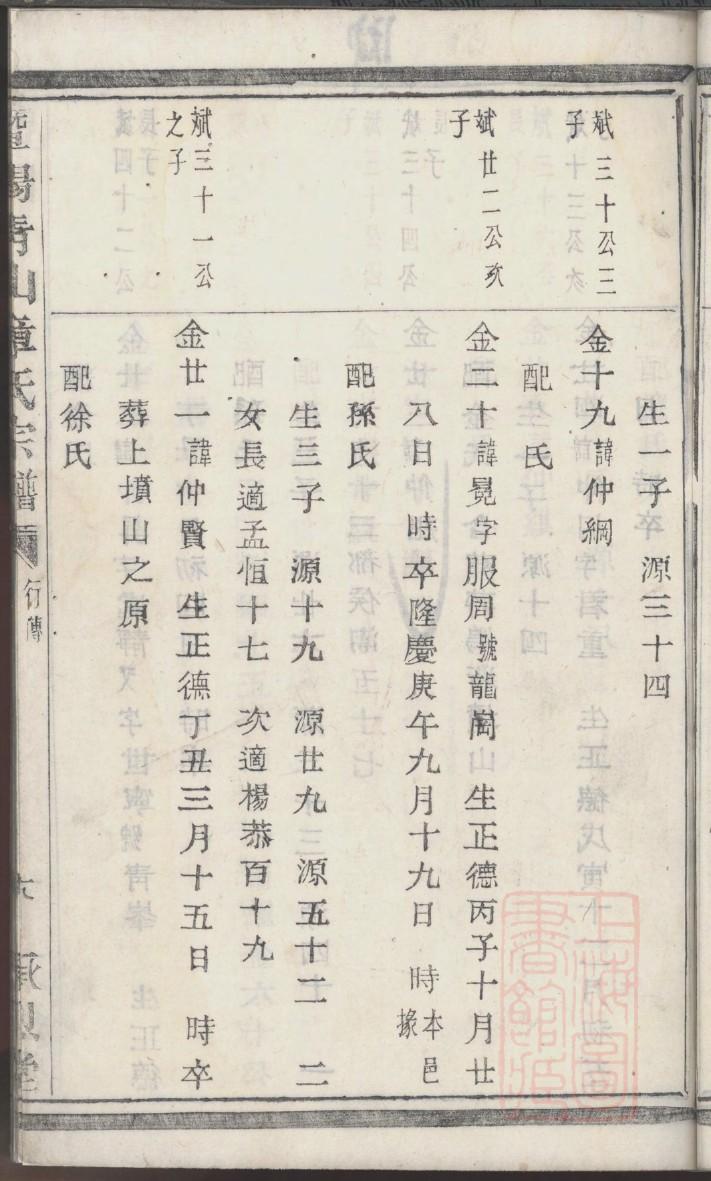 生一子 源三十四
斌三十公三子
金十九諱仲綱
配 氏
斌廿二公亥子
金三十諱冕字服周號龍岡 生正德丙子十月廿
八日 時卒隆慶庚午九月十九日 時本邑掾
配孫氏
生三子 源十九 源廿九 源五十二 二
女長適孟恒十七 次適楊恭百十九
斌三十一公之子
金廿一諱仲賢 生正德丁丑三月十五日 時卒
葬上墳山之原
配徐氏
暨陽青山章氏宗譜
行傳
六